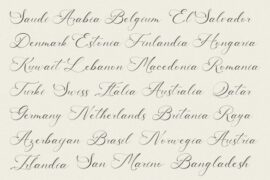 Saudi Arabia Belgium El Salvador
Denmark Estonia Finlandia Hungaria
Kuwait Lebanon Macedonia Romania
Turki Swiss Italia Australia Qatar
Germany Netherlands Britania Raya
Azerbaijan Brasil Norwegia Austria
Irlandia San Marino Bangladesh